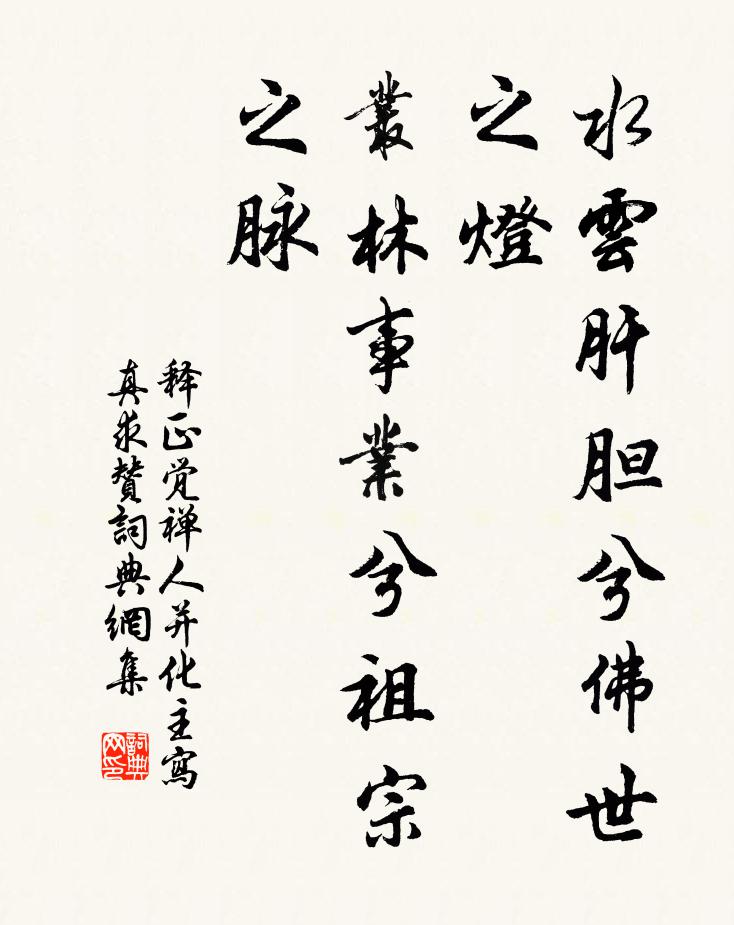 水雲肝胆兮佛世
之燈
叢林事業兮祖宗
之脉
释正覚禅人并化主寫
真求賛詞典網集
詞典
网印